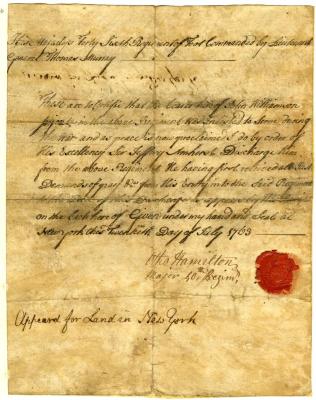 His Majestys Forty Sixth Regiment of Foot Commanded by Lieutenant
General Thomas Murray
These are to Certifie that the bearer hereof John Williamson
in the above Regiment was Enlisted to Serve during
the War and as peace is now proclaimed I do by order of
His Excellency Sir Jeffery Amherst Discharge him
from the above Regiment he having first received all Just
Demands of pay &c from his Entry into the Said Regiment
to the Date of this Discharge as appears by
on the back hereof Given under my hand and Seal at
New York this Twentieth Day of July 1763
Otho Hamilton
Major 46th Regimt
Appeared for Land in New York